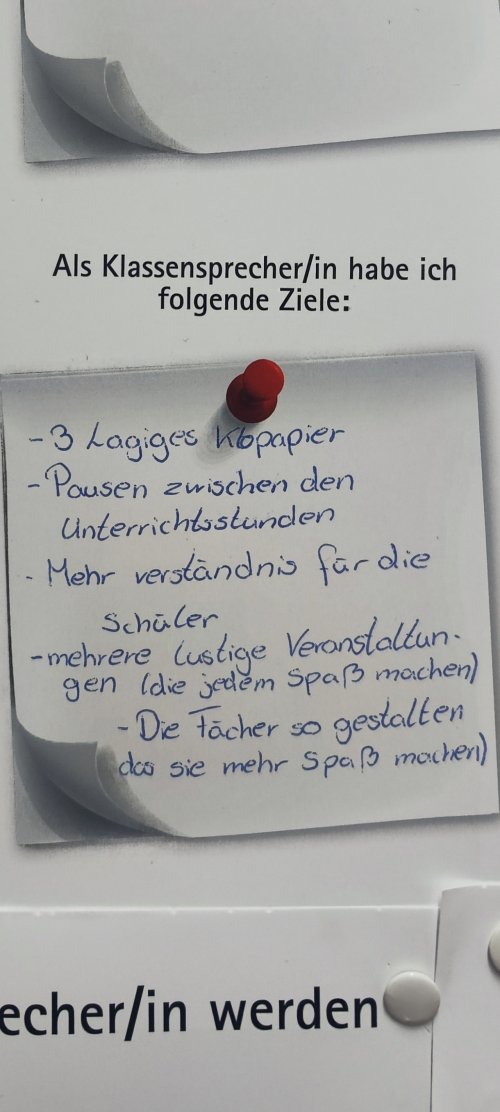 Als Klassensprecher/in habe ich
folgende Ziele:
- 3 Lagiges Klopapier
- Pausen zwischen den
Unterrichtsstunden
- Mehr verständnis für die
Schüler
- mehrere lustige Veranstaltun-
gen (die jedem Spaß machen)
- Die Fächer so gestalten
das sie mehr Spaß machen)
echer/in werden